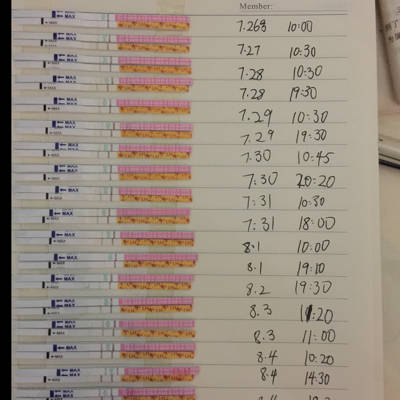 Member:
MAX 7.26 10:00
MAX 7.27 10:30
MAX 7.28 10:30
MAX 7.28 19:30
MAX 7.29 10:30
MAX 7.29 19:30
MAX 7.30 10:45
MAX 7.30 20:20
MAX 7.31 10:30
MAX 7.31 18:00
MAX 8.1 10:00
MAX 8.1 19:10
MAX 8.2 19:30
MAX 8.3 :20
MAX 8.3 11:00
MAX 8.4 10:20
MAX 8.4 14:30